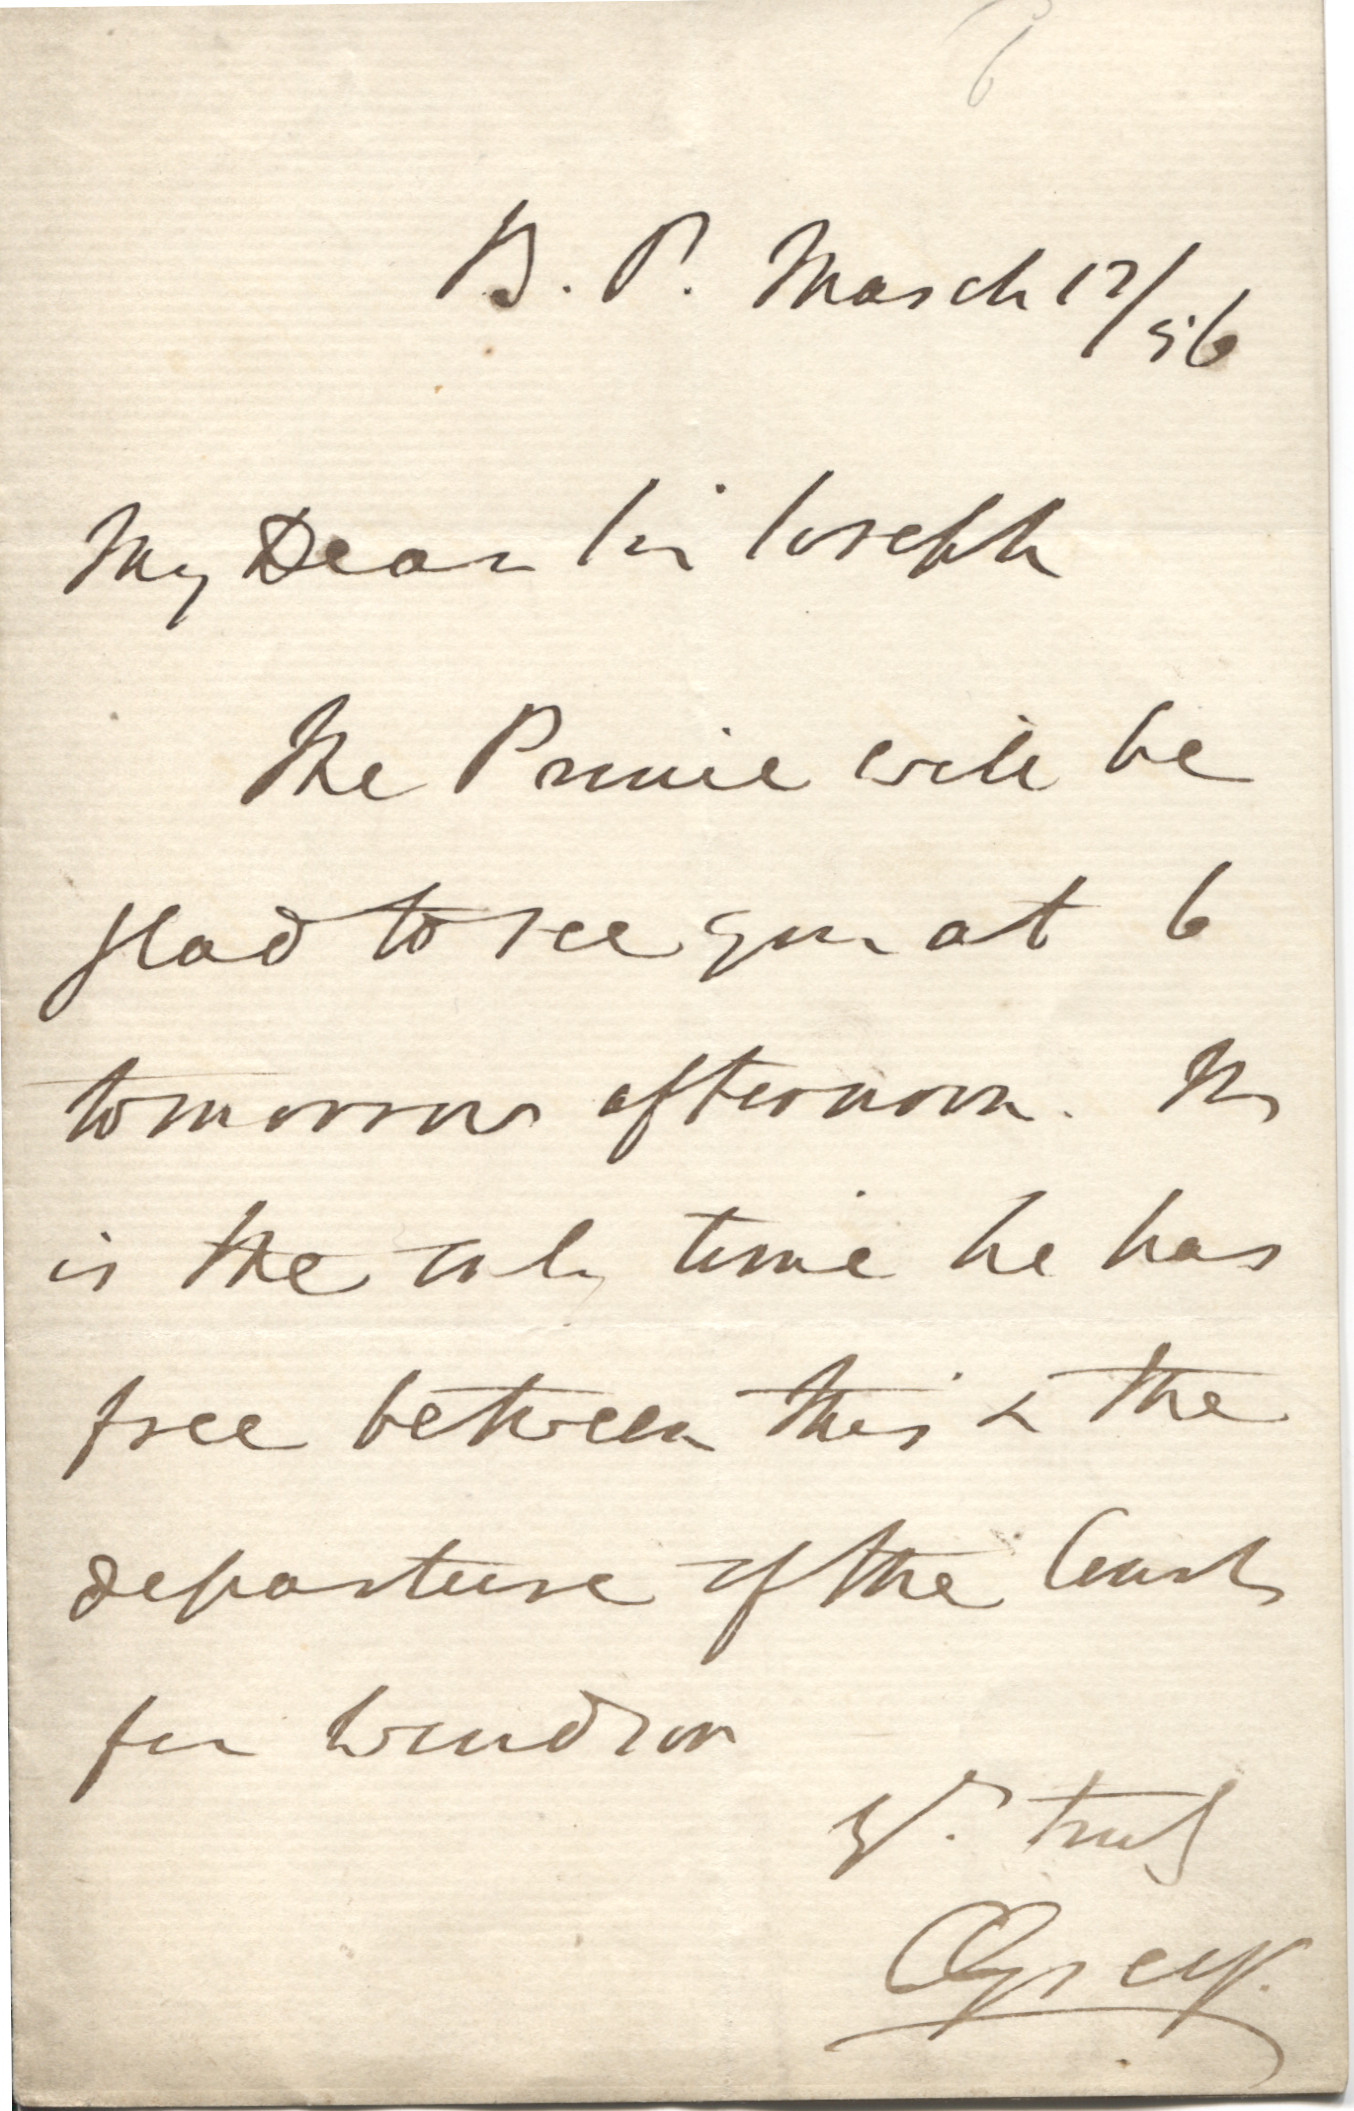 B. P. March 17/56
My Dear Sir Joseph
The Prince will be
glad to see you at 6
tomorrow afternoon. It
is the only time he has
free between this & the
departure of the Court
for Windsor
Yr. truly
C Grey.